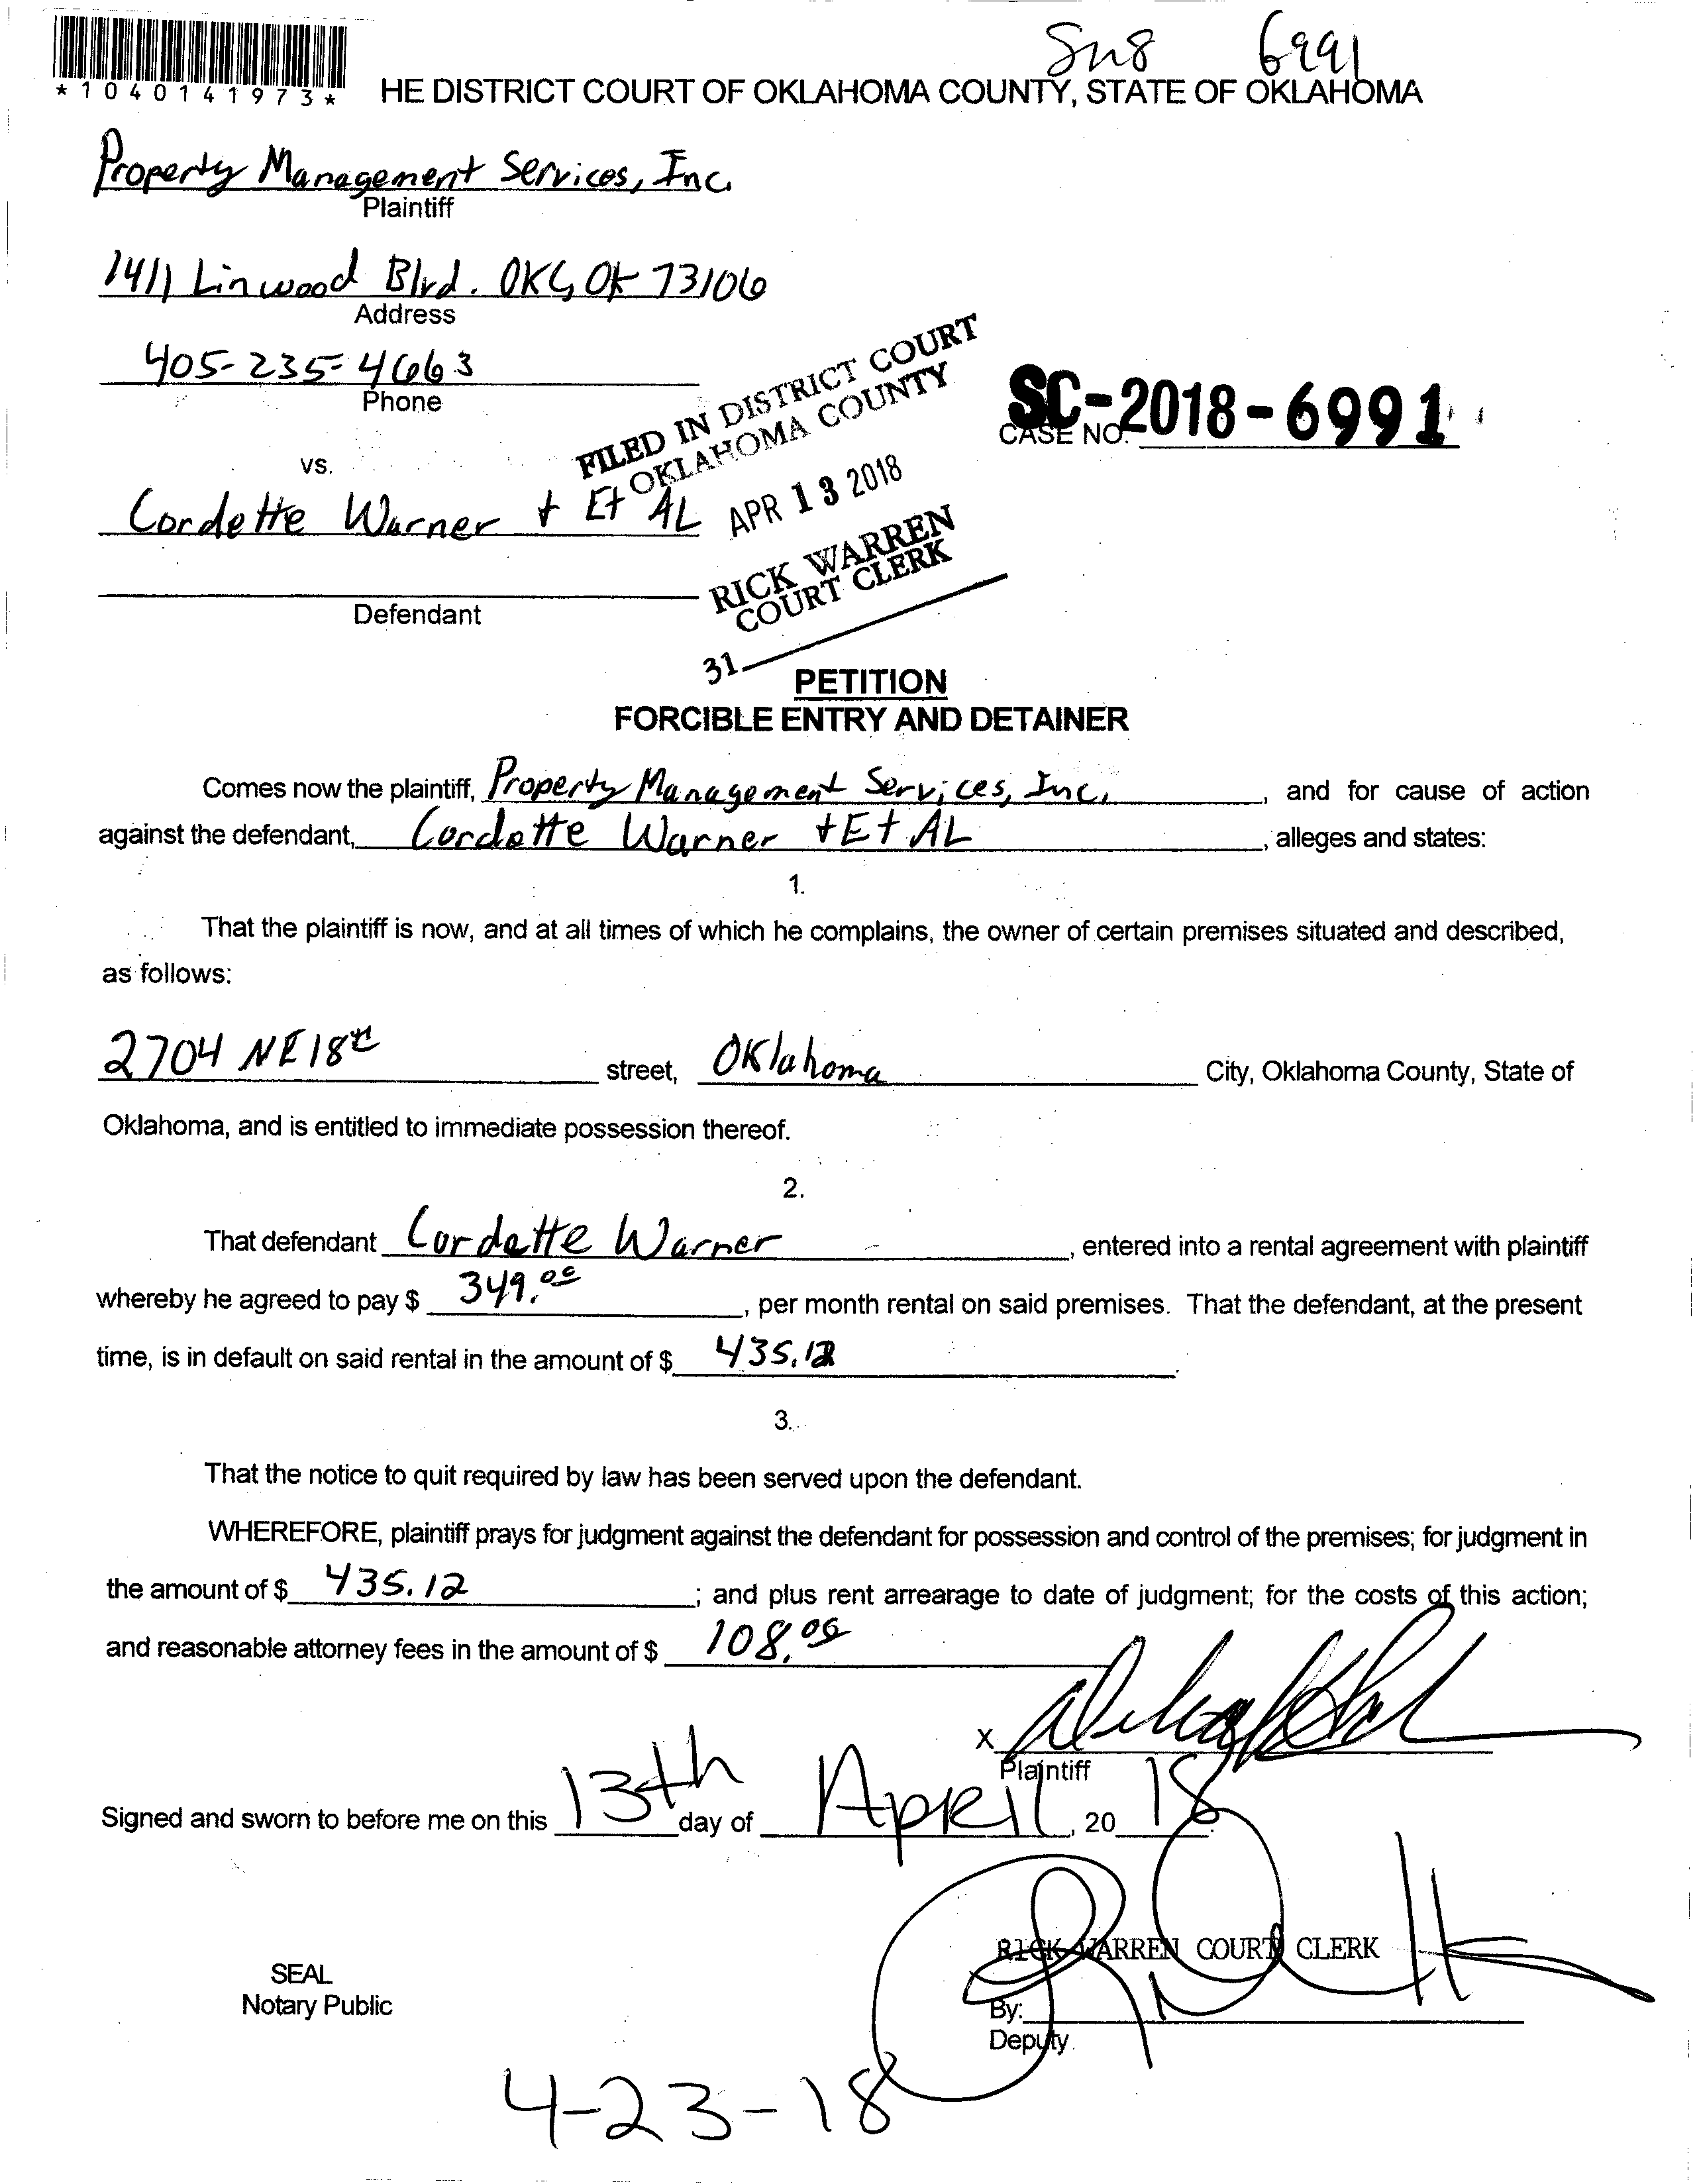 Sm8 6991
*1040141973*
HE DISTRICT COURT OF OKLAHOMA COUNTY, STATE OF OKLAHOMA
Property Management Services, Inc.
Plaintiff
1411 Linwood Blvd. OKC, OK 73106
Address
405-235-4663
Phone
FILED IN DISTRICT COURT
OKLAHOMA COUNTY
SC-2018-6991
CASE NO.
vs.
Cordette Warner + Et AL
APR 13 2018
RICK WARREN
COURT CLERK
Defendant
31
PETITION
FORCIBLE ENTRY AND DETAINER
Comes now the plaintiff, Property Management Services, Inc., and for cause of action
against the defendant, Cordette Warner + Et AL, alleges and states:
1.
That the plaintiff is now, and at all times of which he complains, the owner of certain premises situated and described,
as follows:
2704 NE 18th street, Oklahoma City, Oklahoma County, State of
Oklahoma, and is entitled to immediate possession thereof.
2.
That defendant Cordette Warner, entered into a rental agreement with plaintiff
whereby he agreed to pay $ 349.00, per month rental on said premises. That the defendant, at the present
time, is in default on said rental in the amount of $ 435.12.
3.
That the notice to quit required by law has been served upon the defendant.
WHEREFORE, plaintiff prays for judgment against the defendant for possession and control of the premises; for judgment in
the amount of $ 435.12; and plus rent arrearage to date of judgment; for the costs of this action;
and reasonable attorney fees in the amount of $ 108.00
X
Plaintiff
Signed and sworn to before me on this 13th day of April, 20 18.
RICK WARREN COURT CLERK
SEAL
Notary Public
By:
Deputy
4-23-18